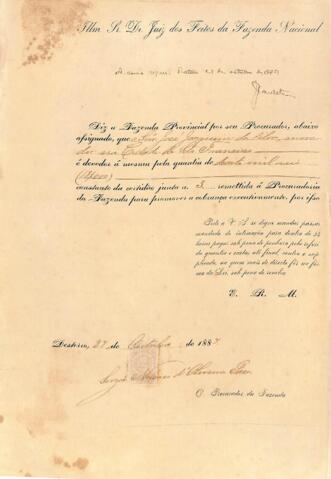 Illm Sr. Dr. Juiz dos Feitos da Fazenda Nacional
A. como requer. Desterro 27 de outubro de 1887
Diz a Fazenda Provincial por seu Procurador, abaixo
assignado, que José Joaquim da Silva, mora
dor na Cidade de S. Francisco
é devedor á mesma pela quantia de
constante da certidão junta a remettida á Procuradoria
da Fazenda para promover a cobrança executivamente, por isso
Pede a V. S. se digne mandar passar
mandado de intimação para dentro de 24
horas pagar sob pena de penhora pela referi-
da quantia e custas até final, contra o sup-
plicado, ou quem mais de direito fôr na fór-
ma da Lei, sob pena de revelia
E. R. M.
Desterro, 27 de Outubro de 1887
O Procurador da Fazenda